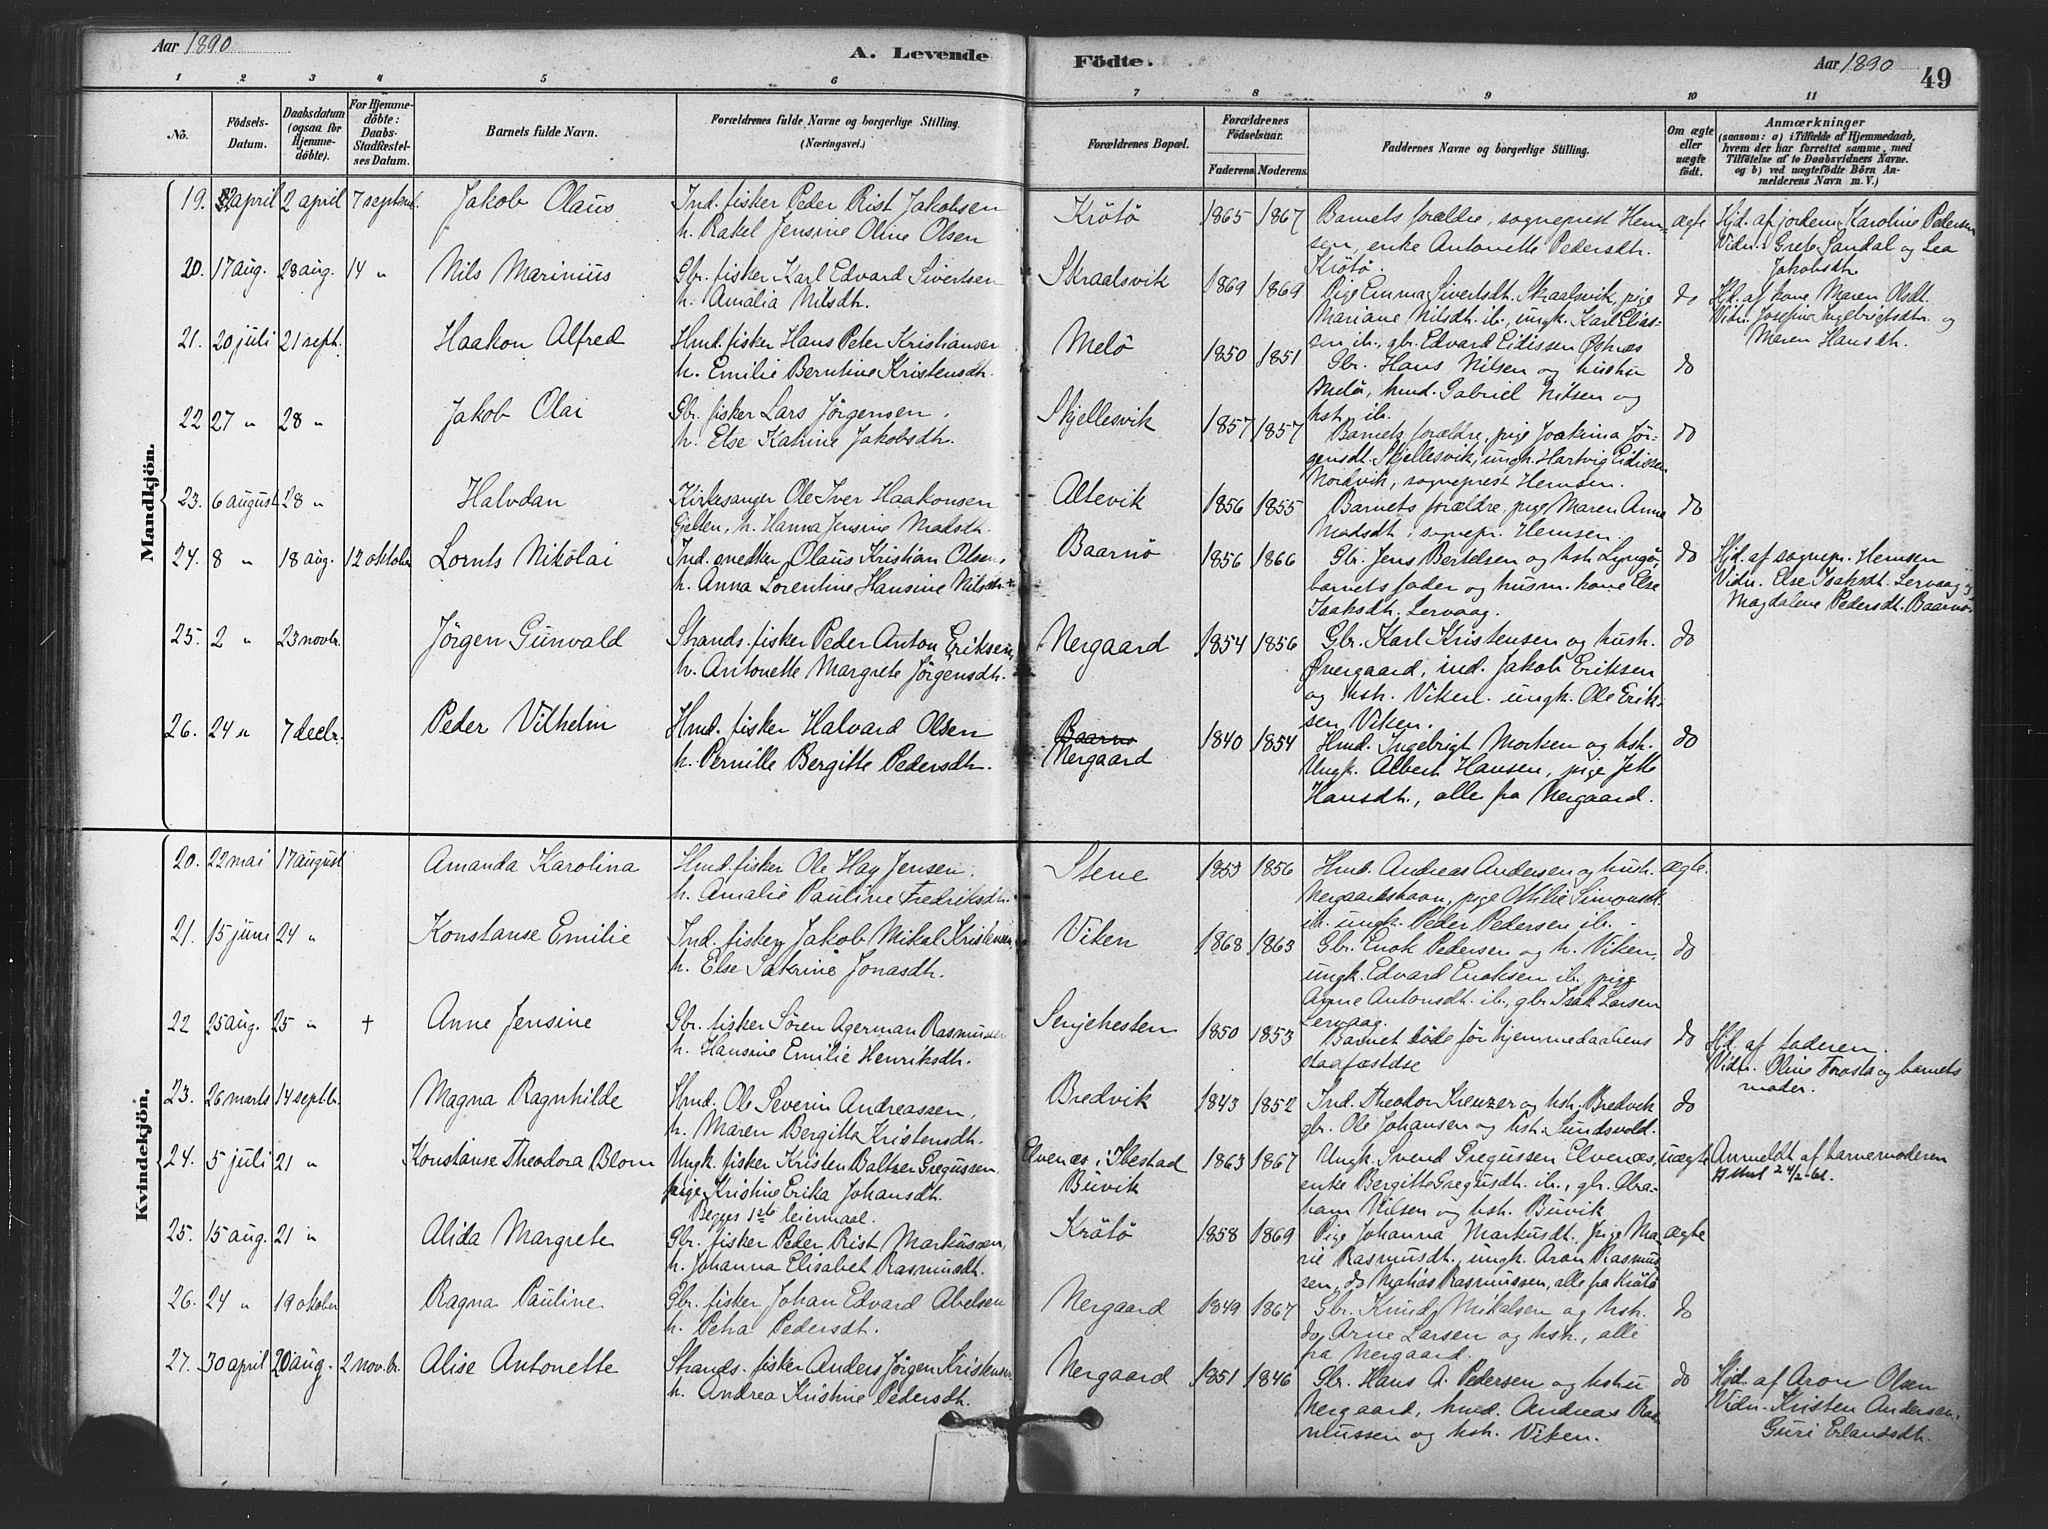 Aar 1890
A. Levende Födte.
Aar 1890
49
1 2 3 4 5 6 7 8 9 10 11
No.
Födsels-Datum.
Daabsdatum (ogsaa for Hjemme-döbte).
For Hjemme-döbte: Daabs-Stadfæstel-ses Datum.
Barnets fulde Navn.
Forældrenes fulde Navne og borgerlige Stilling. (Næringsvei.)
Forældrenes Bopæl.
Forældrenes Födselsaar.
Faderens. Moderens.
Faddernes Navne og borgerlige Stilling.
Om ægte eller uægte födt.
Anmærkninger
(saasom: a) i Tilfælde af Hjemmedaab, hvem der har forrettet samme, med Tilföielse af to Daabsvidners Navne. og b) ved uægtefödte Börn An-melderens Navn m. V.)
Mandkjön.
19. april 2 april 7 septbr. Jakob Olaus
Ind. fisker Peder Rist Jakobsen
h. Rakel Jensine Oline Olsen
Krötö 1865 1867
Barnets forældre, sogneprest Hem-
sen, enke Antonette Pedersdh.
Krötö.
ægte
Hjd. af jordem. Karoline Pedersen
Vidn. Grete Sandal og Lea
Jakobsdh
20. 17 aug. 28 aug. 14 " Nils Marinius
Gbr. fisker Karl Edvard Sivertsen
h. Amalia Nilsdh.
Skraalsvik 1869 1869
Pige Emma Sivertsdh. Skraalsvik, pige
Mariane Nilsdh. ib., ungk. Karl Elias-
sen ib., gbr. Edvard Eidissen Østnæs
do
Hjd. af kone Maren Olsdh.
Vidn. Josefine Ingebrigtsdh. og
Maren Hansdh.
21. 20 juli 21 sept. Haakon Alfred
Hmd. fisker Hans Peter Kristiansen
h. Emilie Berntine Kristensdh.
Melö 1850 1851
Gbr. Hans Nilsen og hustru
Melö, hmd. Gabriel Nilsen og
hst. ib.
do
22 27 " 28 " Jakob Olai
Gbr. fisker Lars Jörgensen.
h. Else Katrine Jakobsdh.
Skjellesvik 1857 1857
Barnets forældre, pige Joakima Jör-
gensdh. Skjellesvik, ungk. Hartvig Eidissen
Nordvik, sogneprest Hemsen.
do
23. 6 august 28 " Halvdan
Kirkesanger Ole Iver Haakonsen
Gjellen, h. Hanna Jensine Madsdh.
Altevik 1856 1855
Barnets forældre, pige Maren Anna
Madsdh., sognepr. Hemsen.
do
24. 8 " 18 aug. 12 oktober Lornts Nikolai
Ind. snedker Olaus Kristian Olsen,
h. Anna Lorentine Hansine Nilsdh.
Baarnö 1856 1866
Gbr. Jens Bertelsen og hst. Lyngö,
barnets fader og husm. kone Else
Isaksdh. Lervaag.
do
Hjd. af sognepr. Hemsen
Vidn. Else Isaksdh. Lervaag og
Magdalene Pedersdh. Baarnö.
25. 2 " 23 novbr. Jörgen Gunvald
Strands. fisker Peder Anton Eriksen,
h. Antonette Margrete Jörgensdh.
Nergaard 1854 1856
Gbr. Karl Kristensen og hust.
Øvergaard, ind. Jakob Eriksen
og hst. Viken. ungk. Ole Erik-
sen Viken.
do
26. 24 " 7 decbr. Peder Vilhelm
Hmd. fisker Halvard Olsen
h. Pernille Bergitte Pedersdh.
Baarnö
Nergaard 1840 1854
Hmd. Ingebrigt Morksen og hst.
Ungk. Albert Hansen, pige Jette
Hansdh., alle fra Nergaard.
do
Kvindekjön.
20. 22 mai 17 august Amanda Karolina
Hmd. fisker Ole Hay Jensen.
h. Amalie Pauline Fredriksdh.
Stene 1853 1856
Hmd. Andreas Andersen og hust.
Nergaardshavn, pige Othilie Simonsdh.
ib. ungk. Peder Pedersen ib.
ægte.
21. 15 juni 24 " Konstanse Emilie
Ind. fisker Jakob Mikal Kristensen,
h. Else Sakrine Jonasdh.
Viken 1868 1863
Gbr. Enok Pedersen og h. Viken,
ungk. Edvard Enoksen ib. pige
Anne Antonsdh. ib., gbr. Isak Larsen
Lervaag.
do
22 25 aug. 25 " + Anne Jensine
Gbr. fisker Sören Agerman Rasmussen
h. Hansine Emilie Henriksdh.
Senjehesten 1850 1853
Barnet döde för hjemmedaabens
stadfæstelse
do
Hjd. af faderen.
Vidn. Oline Frosta og barnets
moder.
23. 26 marts 14 septbr. Magna Ragnhilde
Hmd. Ole Severin Andreassen,
h. Maren Bergitta Kristensdh.
Bredvik 1843 1852
Ind. Theodor Kreuzer og hst. Bredvik
gbr. Ole Johansen og hst. Sundsvold.
do
24. 5 juli 21 " Konstanse Theodora Blom
Ungk. fisker Kristen Baltser Gregussen
pige Kristine Erika Johansdh.
Begges 1ste leiermaal.
Elvenæs i Ibestad
Buvik 1863 1867
Ungk. Svend Gregussen Elvenæs,
enke Bergitte Gregusdh. ib., gbr. Abra-
ham Nilsen og hst. Buvik
uægte
Anmeldt af barnemoderen
25. 15 aug. 21 " Alida Margrete
Gbr. fisker Peder Rist Markussen,
h. Johanna Elisabet Rasmusdh.
Krötö 1858 1869
Pige Johanna Markusdh. pige Ma-
rie Rasmusdh., ungk. Aron Rasmus-
sen, do Matias Rasmussen, alle fra Krötö
ægte
26. 24 " 19 oktober Ragna Pauline
Gbr. fisker Johan Edvard Abelsen
h. Petra Pedersdh.
Nergaard 1849 1867
Gbr. Knud Mikalsen og hst.
do Arne Larsen og hst., alle
fra Nergaard.
do
27. 30 april 20 aug. 2 nov.br. Alise Antonette
Strands. fisker Anders Jörgen Kristensen
h. Andrea Kristine Pedersdh.
Nergaard 1851 1846
Gbr. Hans A. Pedersen og hstu
Nergaard, hmd. Andreas Ras-
mussen og hst. Viken.
do
Hjd. af Aron Olsen
Vidn. Kristen Andersen,
Guri Erlandsdh.